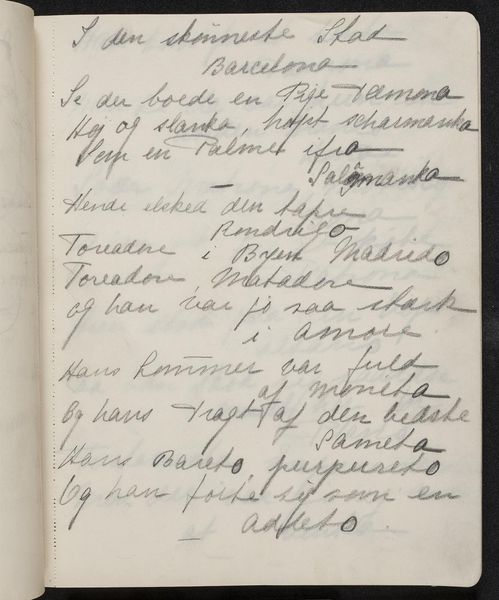 I den skønneste Stad
Barcelona
Se der boede en Pige Damona
Høj og slanka, højst scharmanka
Som en Palmer ifra
Salamanka
Hende elsked den tapre
Rondrigo
Toreadore i Byen Madrido
Toreadore, Matadore
og han var jo saa stærk
i amore
Hans Lommer var fuld
af moneta
Og hans Dragt af den bedste
Sameta
Hans Bareto purpureto
Og han førte sig som en